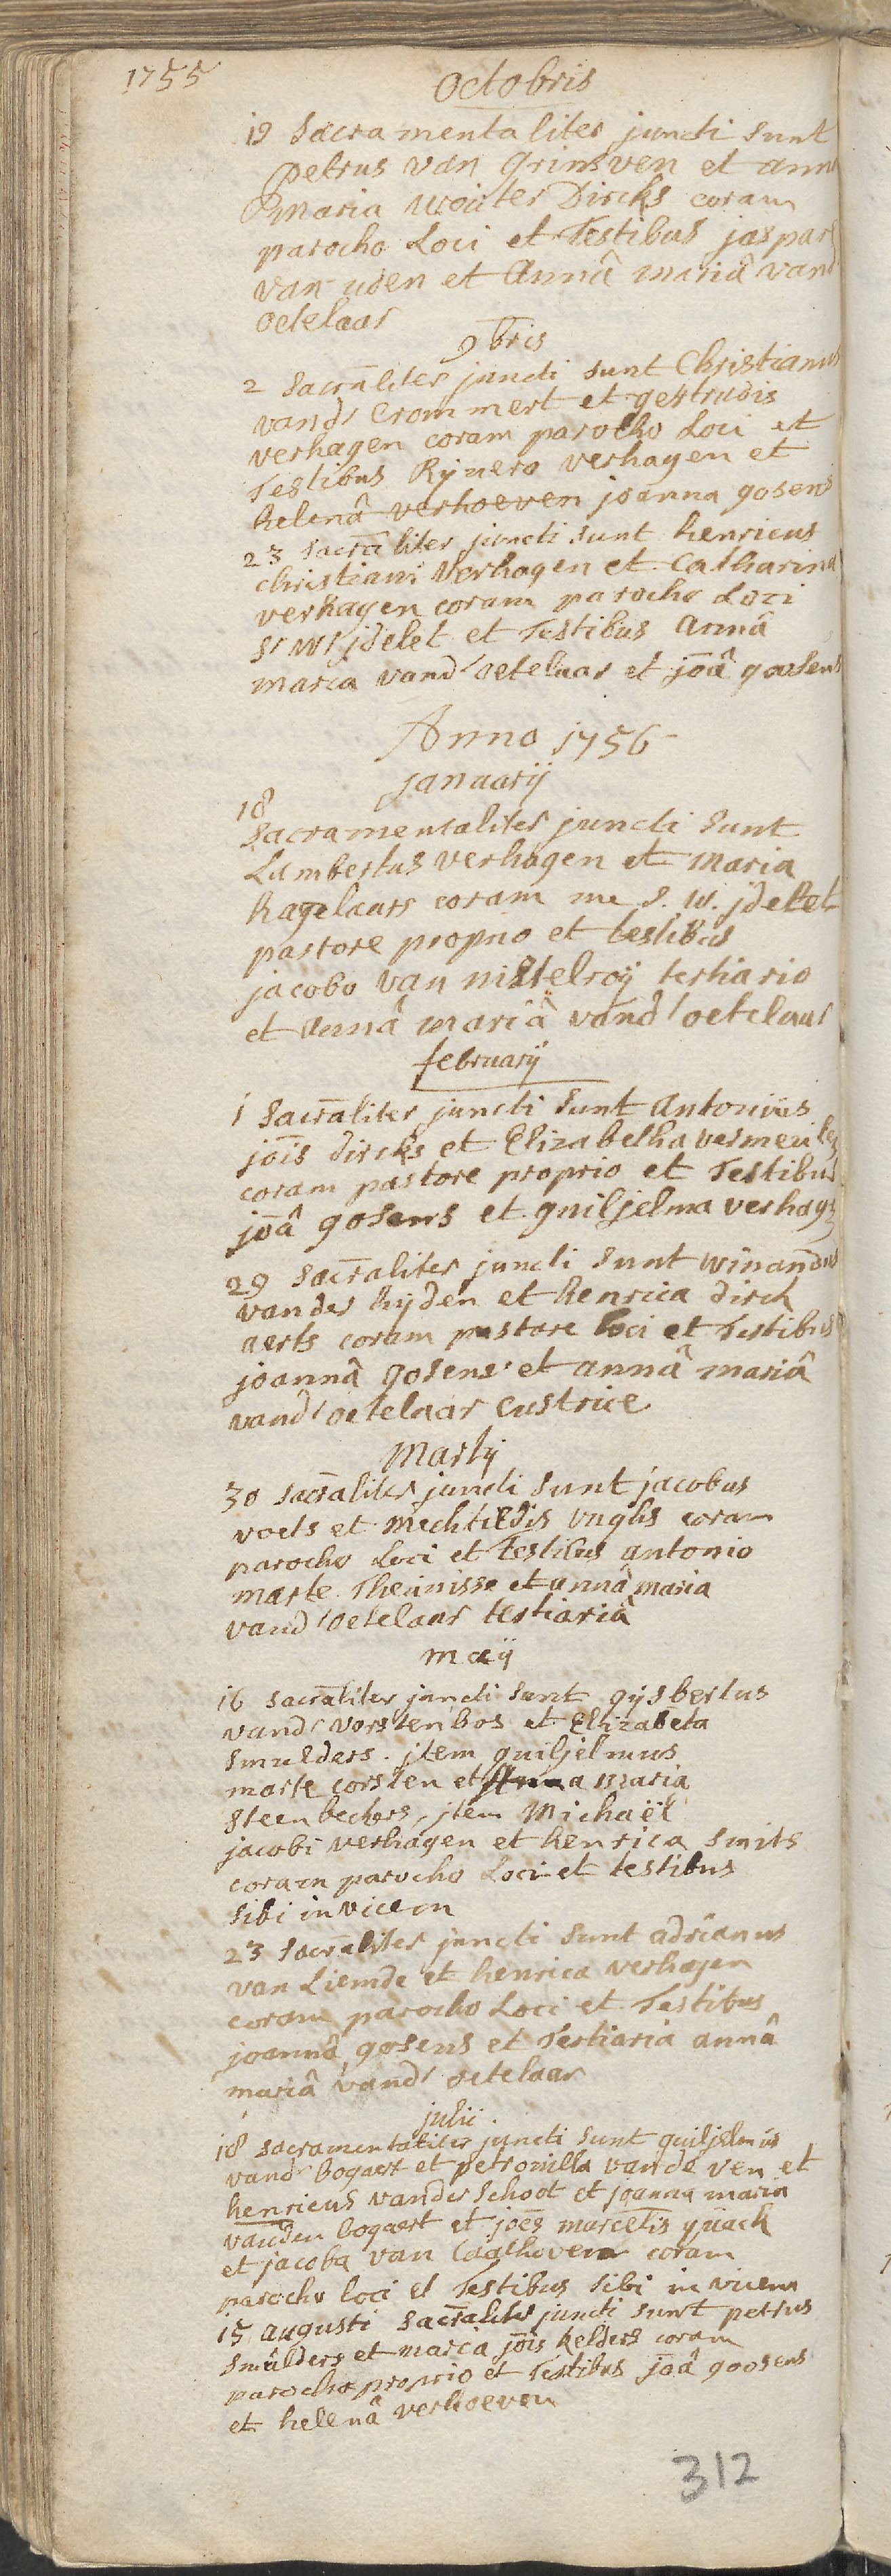 1755
Octobris
19 Sacramentaliter juncti sunt
petrus van Grinsven et anna
Maria Wouter Dircks coram
parocho Loci et Testibus jaspar
van uden et Annâ mariâ vand
oetelaar
9bris
2 Sacra̅liter juncti sunt Christianus
vandr Crommert et gertrudis
verhagen coram parocho Loci et
Testibus Rijnero verhagen et
helenâ verhoeven joanna gosens
23 sacra̅liter juncti sunt henricus
christiani Verhagen et Catharina
verhagen coram parocho Loci
Sr W jdelet et Testibus Annâ
maria vandr oetelaar et jo̅â goosens
Anno 1756
januarij
18
Sacramentaliter juncti sunt
Lambertus verhagen et maria
hagelaars coram me S. W. jdelet
pastore proprio et testibus
jacobo van nistelroij tertiario
et annâ mariâ vandr oetelaar
februarij
1 Sacra̅liter juncti sunt Antonius
jo̅is dircks et Elizabetha vermeulen
coram pastore proprio et Testibus
jo̅â gosens et guiljelma verhagen
29 Sacra̅liter juncti sunt winandus
vander hijden et henrica dirck
aerts coram pastore loci et Testibus
joannâ gosens et annâ mariâ
vandr oetelaar custrice
Martij
30 sacra̅liter juncti sunt jacobus
voets et Mechtildis coram
parocho Loci et Testibus antonio
marte Theunisse et annâ maria
vandr oetelaar tertiariâ
maij
16 sacra̅liter juncti sunt gijsbertus
vandr vorstenbos et Elizabeta
smulders. jtem guiljelmus
marte corsten et Anna maria
Steenbeckers, jtem Michaël
jacobi verhagen et henrica smits
coram parocho Loci et testibus
sibi invicem
23 sacra̅liter juncti sunt adrianus
van Liemde et henrica verhagen
coram parocho Loci et Testibus
joannâ gosens et Tertiaria annâ
mariâ vandr oetelaar
julii.
18 sacramentaliter juncti sunt guiljelmus
vandr bogaert et petronilla vande ven et
henricus vander schoot et joanna maria
vanden bogaert et joe̅s marcelis quack
et jacoba van coram
parocho loci et Testibus sibi in vicem
15 augusti sacra̅liter juncti sunt petrus
smulders et maria jo̅is kelders coram
parocho proprio et Testibus jo̅â goosens
et helenâ verhoeven
312